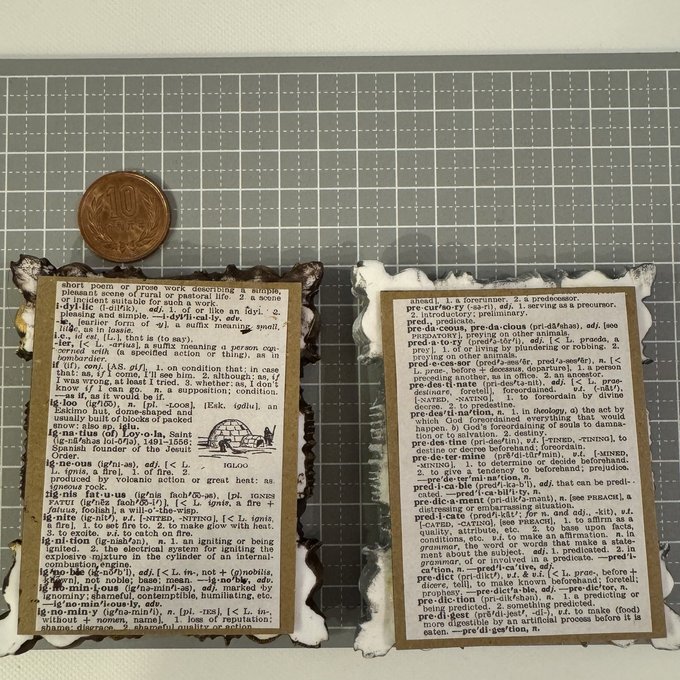 10
short poem or prose work describing a simple,
pleasant scene of rural or pastoral life. 2. a scene
or incident suitable for such a work.
i·dyl·lic (ī-dil'ik), adj. 1. of or like an idyl. 2.
pleasing and simple. —i·dyl'li·cal·ly, adv.
[earlier form of -y], a suffix meaning small,
little, as in lassie.
i.e., id est, [L.], that is (to say).
-ier, [< L. -arius], a suffix meaning a person con-
cerned with (a specified action or thing), as in
bombardier.
if (if), conj. [AS. gif], 1. on condition that; in case
that: as, if I come, I'll see him. 2. although: as, if
I was wrong, at least I tried. 3. whether: as, I don't
know if I can go. n. a supposition; condition.
—as if, as it would be if.
ig·loo (ig'lōō), n. [pl. -LOOS], [Esk. igdlu], an
Eskimo hut, dome-shaped and
usually built of blocks of packed
snow: also sp. iglu.
IGLOO
Ig·na·tius (of) Loy·o·la, Saint
(ig-nā'shəs loi-ō'lə), 1491–1556;
Spanish founder of the Jesuit
Order.
ig·ne·ous (ig'ni-əs), adj. [< L.
L. ignis, a fire], 1. of fire. 2.
produced by volcanic action or great heat: as,
igneous rock.
ig·nis fat·u·us (ig'nis fach'ōō-əs), [pl. IGNES
FATUI (ig'nēz fach'ōō-ī')], [< L. ignis, a fire +
fatuus, foolish], a will-o'-the-wisp.
ig·nite (ig-nīt'), v.t. [-NITED, -NITING], [< L. ignis,
a fire], 1. to set fire to. 2. to make glow with heat.
3. to excite. v.i. to catch on fire.
ig·ni·tion (ig-nish'ən), n. 1. an igniting or being
ignited. 2. the electrical system for igniting the
explosive mixture in the cylinder of an internal-
combustion engine.
ig·no·ble (ig-nō'b'l), adj. [< L. in-, not + (g)nobilis,
known], not noble; base; mean. —ig·no'bly, adv.
ig·no·min·i·ous (ig'nə-min'i-əs), adj. marked by
ignominy; shameful, contemptible, humiliating, etc.
—ig'no·min'i·ous·ly, adv.
ig·no·min·y (ig'nə-min'i), n. [pl. -IES], [< L. in-
without + nomen, name], 1. loss of reputation;
shame; disgrace. 2. shameful quality or action.
ahead], 1. a forerunner. 2. a predecessor.
pre·cur·so·ry (-sə-ri), adj. 1. serving as a precursor.
2. introductory; preliminary.
pred., predicate.
pre·da·ceous, pre·da·cious (pri-dā'shəs), adj. [see
PREDATORY], preying on other animals.
pred·a·to·ry (pred'ə-tôr'i), adj. [< L. praeda, a
prey], 1. of or living by plundering or robbing. 2.
preying on other animals.
pred·e·ces·sor (pred'ə-ses'ẽr, pred'ə-ses'ẽr), n. [<
L. prae-, before + decessus, departure], 1. a person
preceding another, as in office. 2. an ancestor.
pre·des·ti·nate (pri-des'tə-nit), adj. [< L. prae-
destinare, foretell], foreordained. v.t. (-nāt'),
[-NATED, -NATING], 1. to foreordain by divine
decree. 2. to predestine.
pre·des·ti·na·tion, n. 1. in theology, a) the act by
which God foreordained everything that would
happen. b) God's foreordaining of souls to damna-
tion or to salvation. 2. destiny.
pre·des·tine (pri-des'tin), v.t. [-TINED, -TINING], to
destine or decree beforehand; foreordain.
pre·de·ter·mine (prē'di-tũr'min), v.t. [-MINED,
-MINING], 1. to determine or decide beforehand.
2. to give a tendency to beforehand; prejudice.
—pre'de·ter'mi·na'tion, n.
pred·i·ca·ble (pred'i-kə-b'l), adj. that can be predi-
cated. —pred'i·ca·bil'i·ty, n.
pre·dic·a·ment (pri-dik'ə-mənt), n. [see PREACH], a
distressing or embarrassing situation.
pred·i·cate (pred'i-kāt'; for n. and adj., -kit), v.t.
[-CATED, -CATING], [see PREACH], 1. to affirm as a
quality, attribute, etc. 2. to base upon facts,
conditions, etc. v.i. to make an affirmation. n. in
grammar, the word or words that make a state-
ment about the subject. adj. 1. predicated. 2. in
grammar, of or involved in a predicate. —pred'i-
ca'tion, n. —pred'i·ca'tive, adj.
pre·dict (pri-dikt'), v.t. & v.i. [< L. prae-, before +
dicere, tell], to make known beforehand; foretell;
prophesy. —pre·dict'a·ble, adj. —pre·dic'tor, n.
pre·dic·tion (pri-dik'shən), n. 1. a predicting or
being predicted. 2. something predicted.
pre·di·gest (prē'di-jest', -dī-), v.t. to make (food)
more digestible by an artificial process before it is
eaten. —pre'di·ges'tion, n.